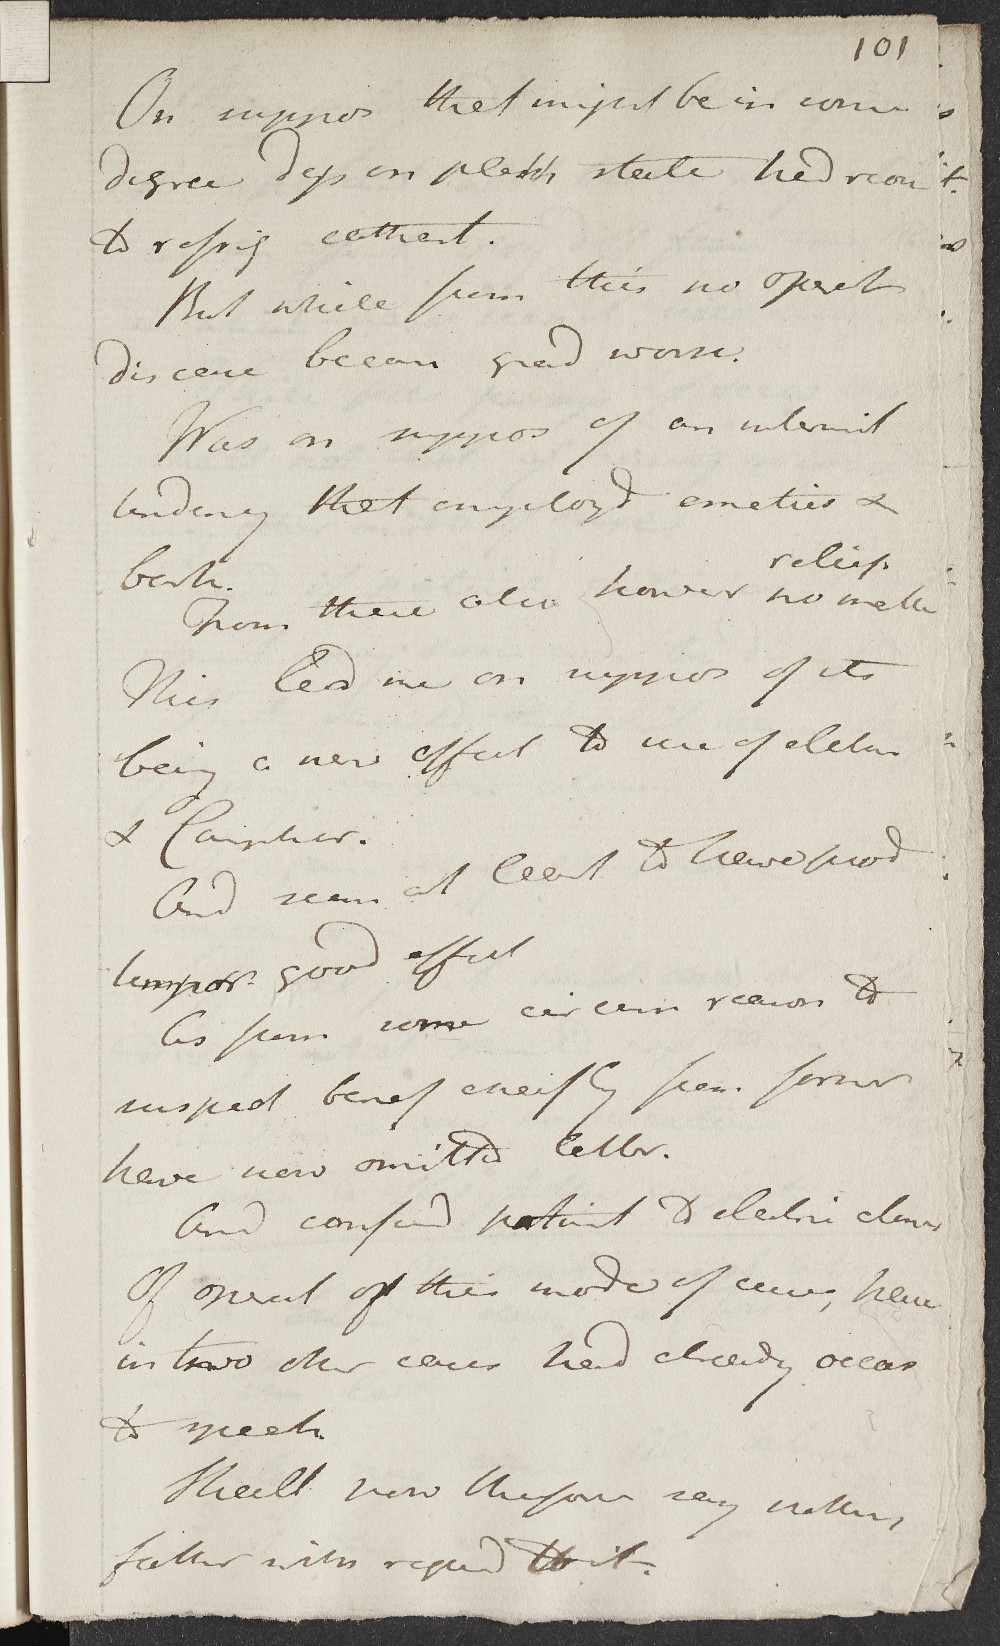 101
On suppos that might be in some
degree dep on pleth state had recou
to refrig cathart.
But while from this no operat
disease becam grad worse.
Was on suppos of an intermit
tendency that employd emetics &
bark.
relief
From these also howevr no mater
This lead me on suppos of its
being a nerv affect to use of eletur
& Camphor.
And seem at least to have prod
tempor good effect
As from some circum reason to
suspect benef cheifly from former
have now omittd latter.
And confind patient to electri alone
Of operat of this mode of cure, have
in two other cases had already occas
to speak
Shall now therefore say nothing
father with regard to it.